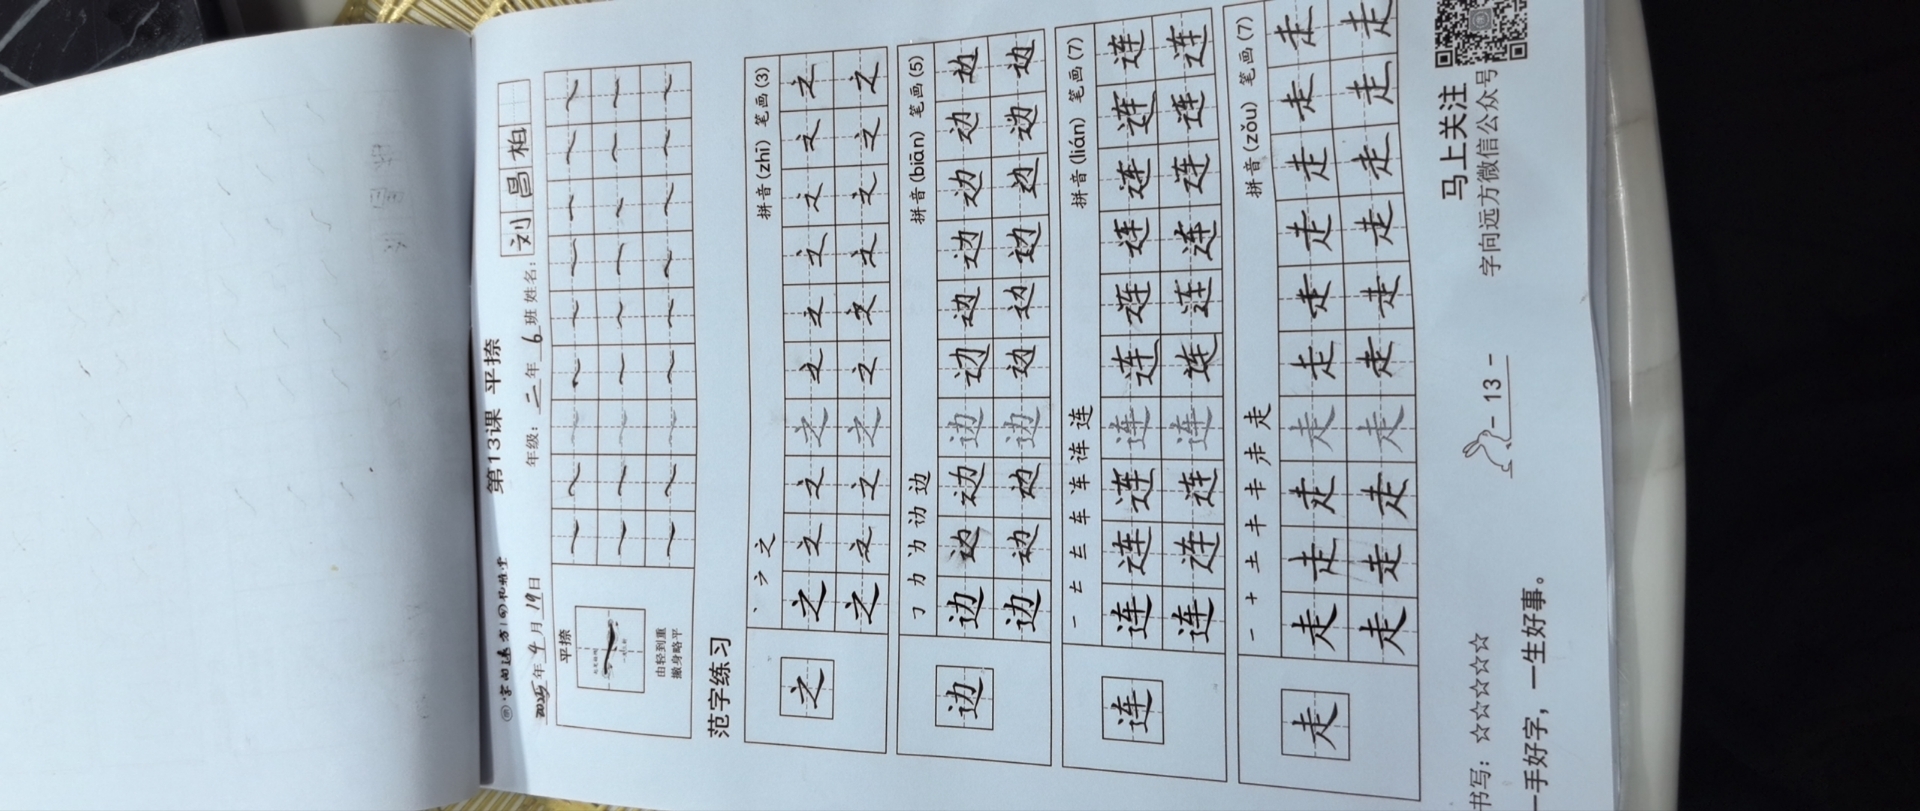 字向远方|向书雅堂
第13课 平捺
2025年4月19日 年级：二年6班 姓名：刘昌柏
平捺
由轻到重
撇身略平
范字练习
丶 ㇇ 之 拼音(zhī) 笔画(3)
之 之 之 之 之 之 之 之 之 之 之
之 之 之 之 之 之 之 之 之 之
㇆ 力 力 边 边 拼音(biān) 笔画(5)
边 边 边 边 边 边 边 边 边 边 边
边 边 边 边 边 边 边 边 边 边
一 𠂇 车 车 连 连 连 拼音(lián) 笔画(7)
连 连 连 连 连 连 连 连 连 连 连
连 连 连 连 连 连 连 连 连 连
一 十 土 キ 走 走 走 拼音(zǒu) 笔画(7)
走 走 走 走 走 走 走 走 走 走 走
走 走 走 走 走 走 走 走 走 走
书写：☆☆☆☆☆☆
一手好字，一生好事。
- 13 -
马上关注
字向远方微信公众号